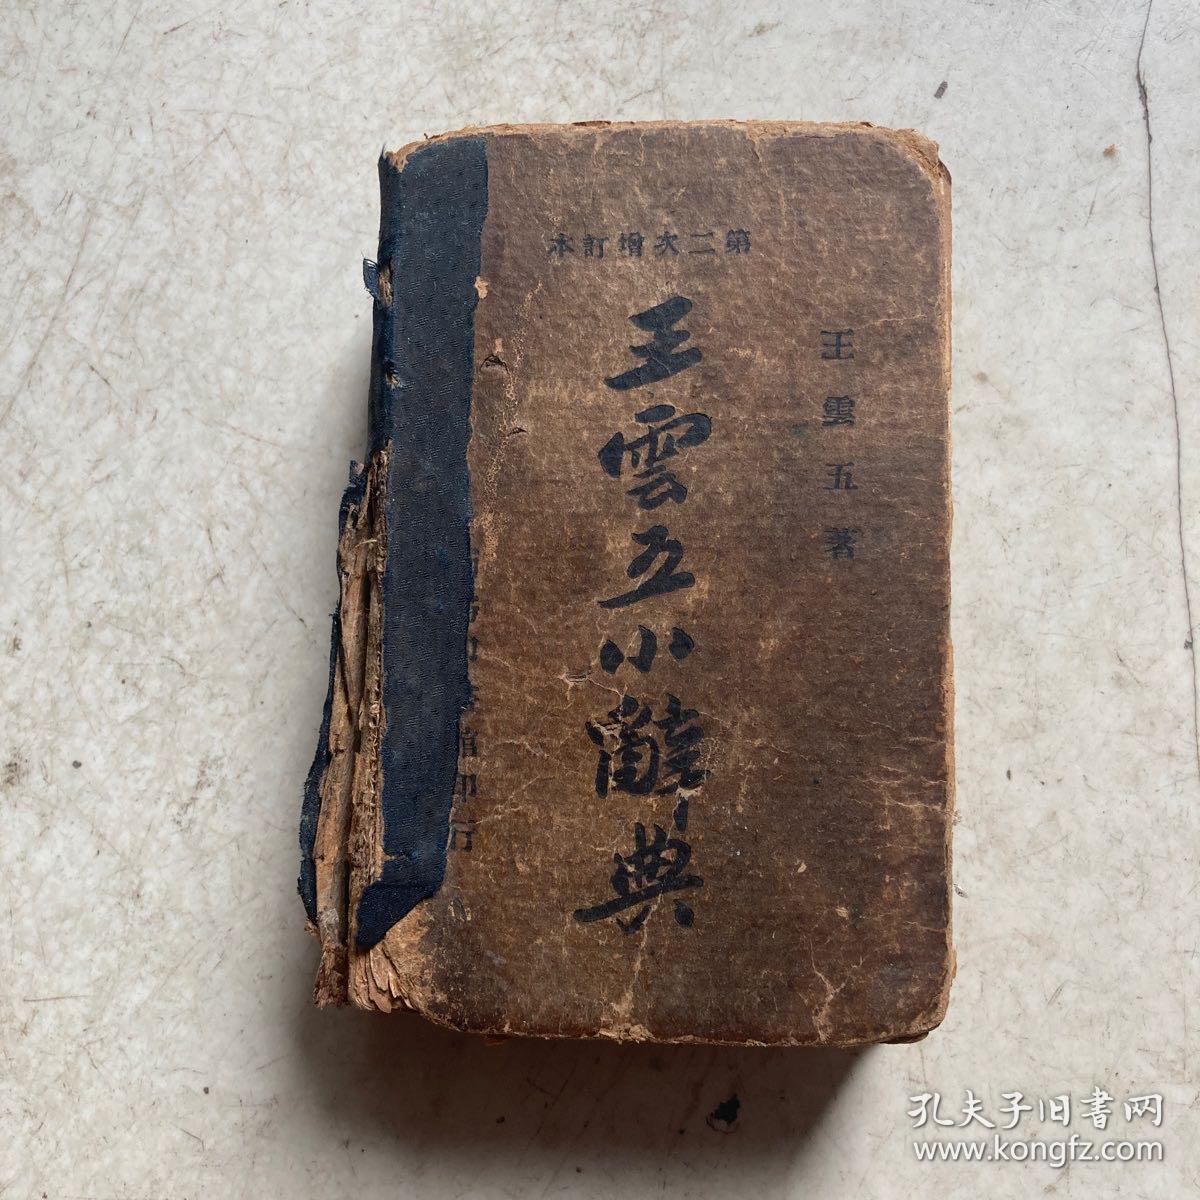 第二次增訂本
王雲五著
王雲五小辭典
館印行
孔夫子旧书网
www.kongfz.com